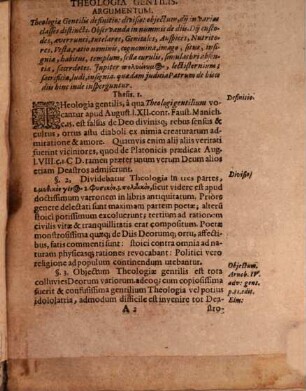 THEOLOGIA GENTILIS.
ARGUMENTUM.
Theologia Gentilis definitio: divisio: objectum, diij in varias
classes distincti. Observanda in numinis de diis. Dij custo-
des, averrunci, tutelares, Geniales, Auspices, Nutrito-
res, Vesta, ratio nominis, cognomina, imago, situs, insi-
gnia, habitus, templum, festa curulia, simulachra
sacerdotes. Jupiter lectisternium
sacrificia, ludi, insignia. quædam judicia Patrum de hisce
diis hinc inde inspergunt.
Thesis. I.
THeologia gentilis, à qua Theologi gentilium vo-
cantur apud August. l. XII. cont. Faust. Manich.
est falsus de Deo divinisq; rebus sensus &
cultus, ortus astu diaboli ex nimia creaturarum ad-
miratione & amore. Quamvis enim alij aliis veritati
fuerint viciniores, quod de Platonicis prædicat Aug.
l. VIII. c. s C D. tamen præter unum verum Deum alios
etiam Deastros admiserunt.
Definitio.
§. 2. Dividebatur Theologia in tres partes,
sicut videre est apud
doctissimum varronem in libris antiquitatum. Priora
genere delectati sunt maximam partem poetæ; alterâ
stoici potissimum excoluerunt; tertium ad rationem
civilis vitæ & tranquillitatis erat compositum. Poetæ
monstrosissima quoq; de Diis Deorumq; ortu, affecti-
bus, fatis commenti sunt: stoici contra omnia ad na-
turam physicasq; rationes revocabant: Politici vero
religione ad populum continendum utebantur.
Divisio;
§. 3. Objectum Theologiæ gentilis est tota
colluvies Deorum variorum. adeoq; cum copiosissima
fuerit & confusissima gentilium Theologia vel potius
idololatria, admodum difficile est invenire tot Dea-
Objectum,
Arnob. IV.
adv: gent.
A 2
stro-